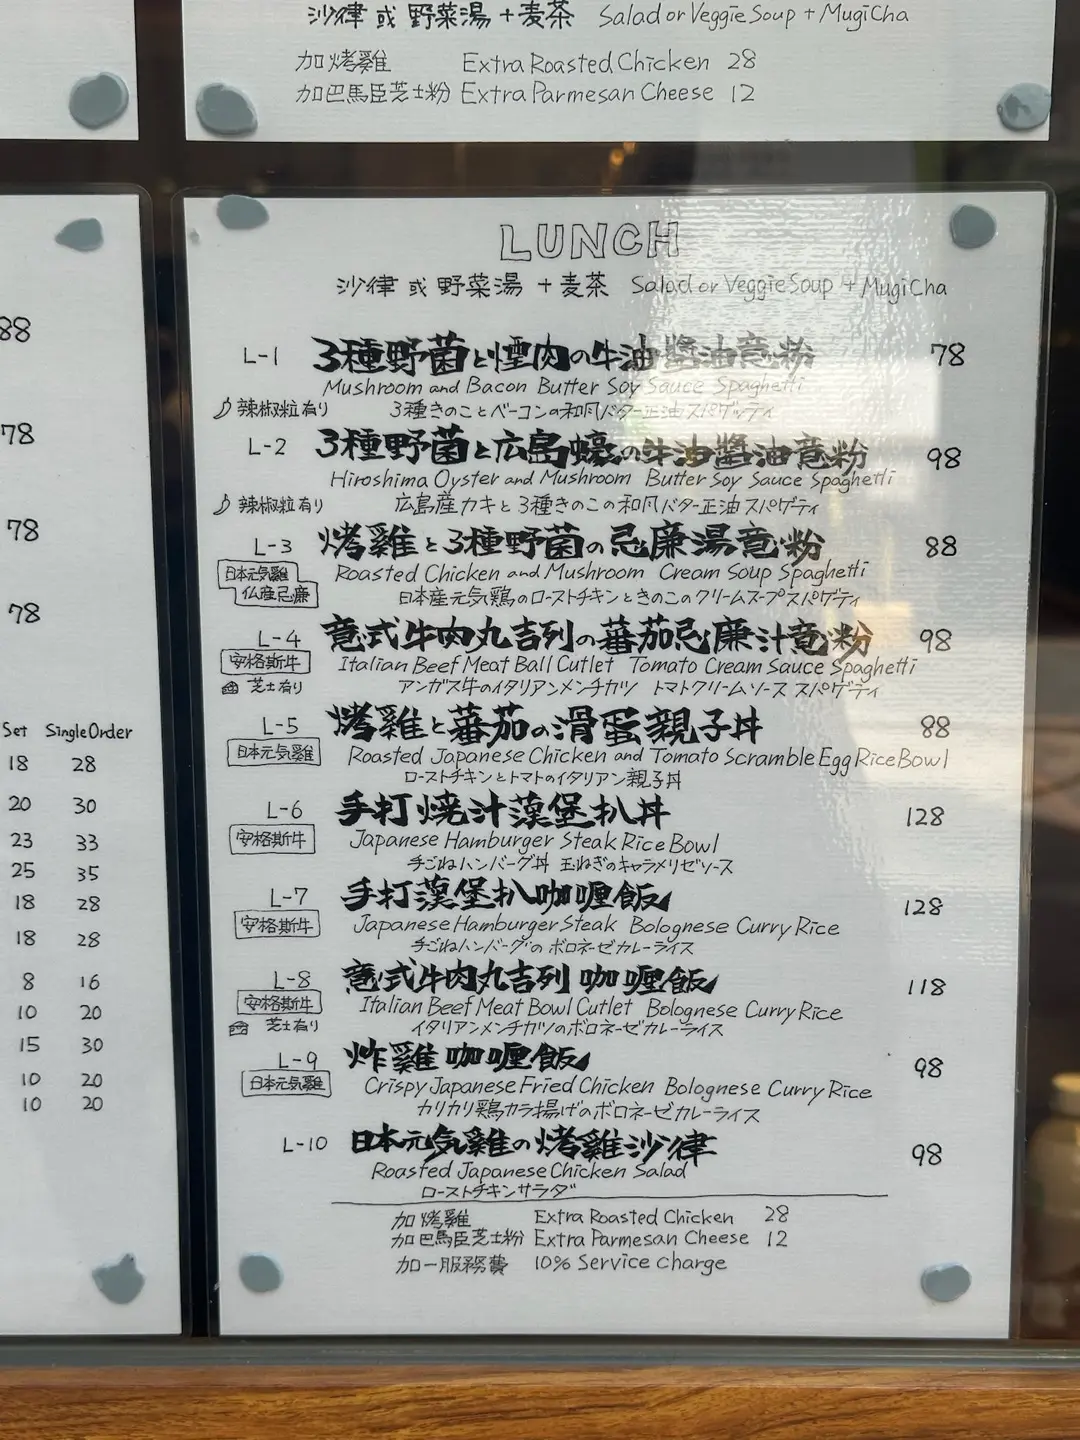 沙律 或 野菜湯 + 麦茶 Salad or Veggie Soup + MugiCha
加烤雞 Extra Roasted Chicken 28
加巴馬臣芝士粉 Extra Parmesan Cheese 12
88
78
78
78
Set Single Order
18 28
20 30
23 33
25 35
18 28
18 28
8 16
10 20
15 30
10 20
10 20
LUNCH
沙律 或 野菜湯 + 麦茶 Salad or Veggie Soup + MugiCha
L-1 3種野菌と煙肉の牛油醬油意粉 78
Mushroom and Bacon Butter Soy Sauce Spaghetti
辣椒粒有り 3種きのことベーコンの和風バター正油スパゲッティ
L-2 3種野菌と広島蠔の牛油醬油意粉 98
Hiroshima Oyster and Mushroom Butter Soy Sauce Spaghetti
辣椒粒有り 広島産カキと3種きのこの和風バター正油スパゲティ
L-3 烤雞と3種野菌の忌廉湯意粉 88
日本元気雞 Roasted Chicken and Mushroom Cream Soup Spaghetti
仏産忌廉 日本産元気鶏のローストチキンときのこのクリームスープスパゲティ
L-4 意式牛肉丸吉列の蕃茄忌廉汁意粉 98
安格斯牛 Italian Beef Meat Ball Cutlet Tomato Cream Sauce Spaghetti
芝士有り アンガス牛のイタリアンメンチカツ トマトクリームソーススパゲティ
L-5 烤雞と蕃茄の滑蛋親子丼 88
日本元気雞 Roasted Japanese Chicken and Tomato Scramble Egg Rice Bowl
ローストチキンとトマトのイタリアン親子丼
L-6 手打焼汁漢堡扒丼 128
安格斯牛 Japanese Hamburger Steak Rice Bowl
手ごねハンバーグ丼 玉ねぎのキャラメリゼソース
L-7 手打漢堡扒咖喱飯 128
安格斯牛 Japanese Hamburger Steak Bolognese Curry Rice
手ごねハンバーグのボロネーゼカレーライス
L-8 意式牛肉丸吉列咖喱飯 118
安格斯牛 Italian Beef Meat Bowl Cutlet Bolognese Curry Rice
芝士有り イタリアンメンチカツのボロネーゼカレーライス
L-9 炸雞咖喱飯 98
日本元気雞 Crispy Japanese Fried Chicken Bolognese Curry Rice
カリカリ鶏カラ揚げのボロネーゼカレーライス
L-10 日本元気雞の烤雞沙律 98
Roasted Japanese Chicken Salad
ローストチキンサラダ
加烤雞 Extra Roasted Chicken 28
加巴馬臣芝士粉 Extra Parmesan Cheese 12
加一服務費 10% Service charge